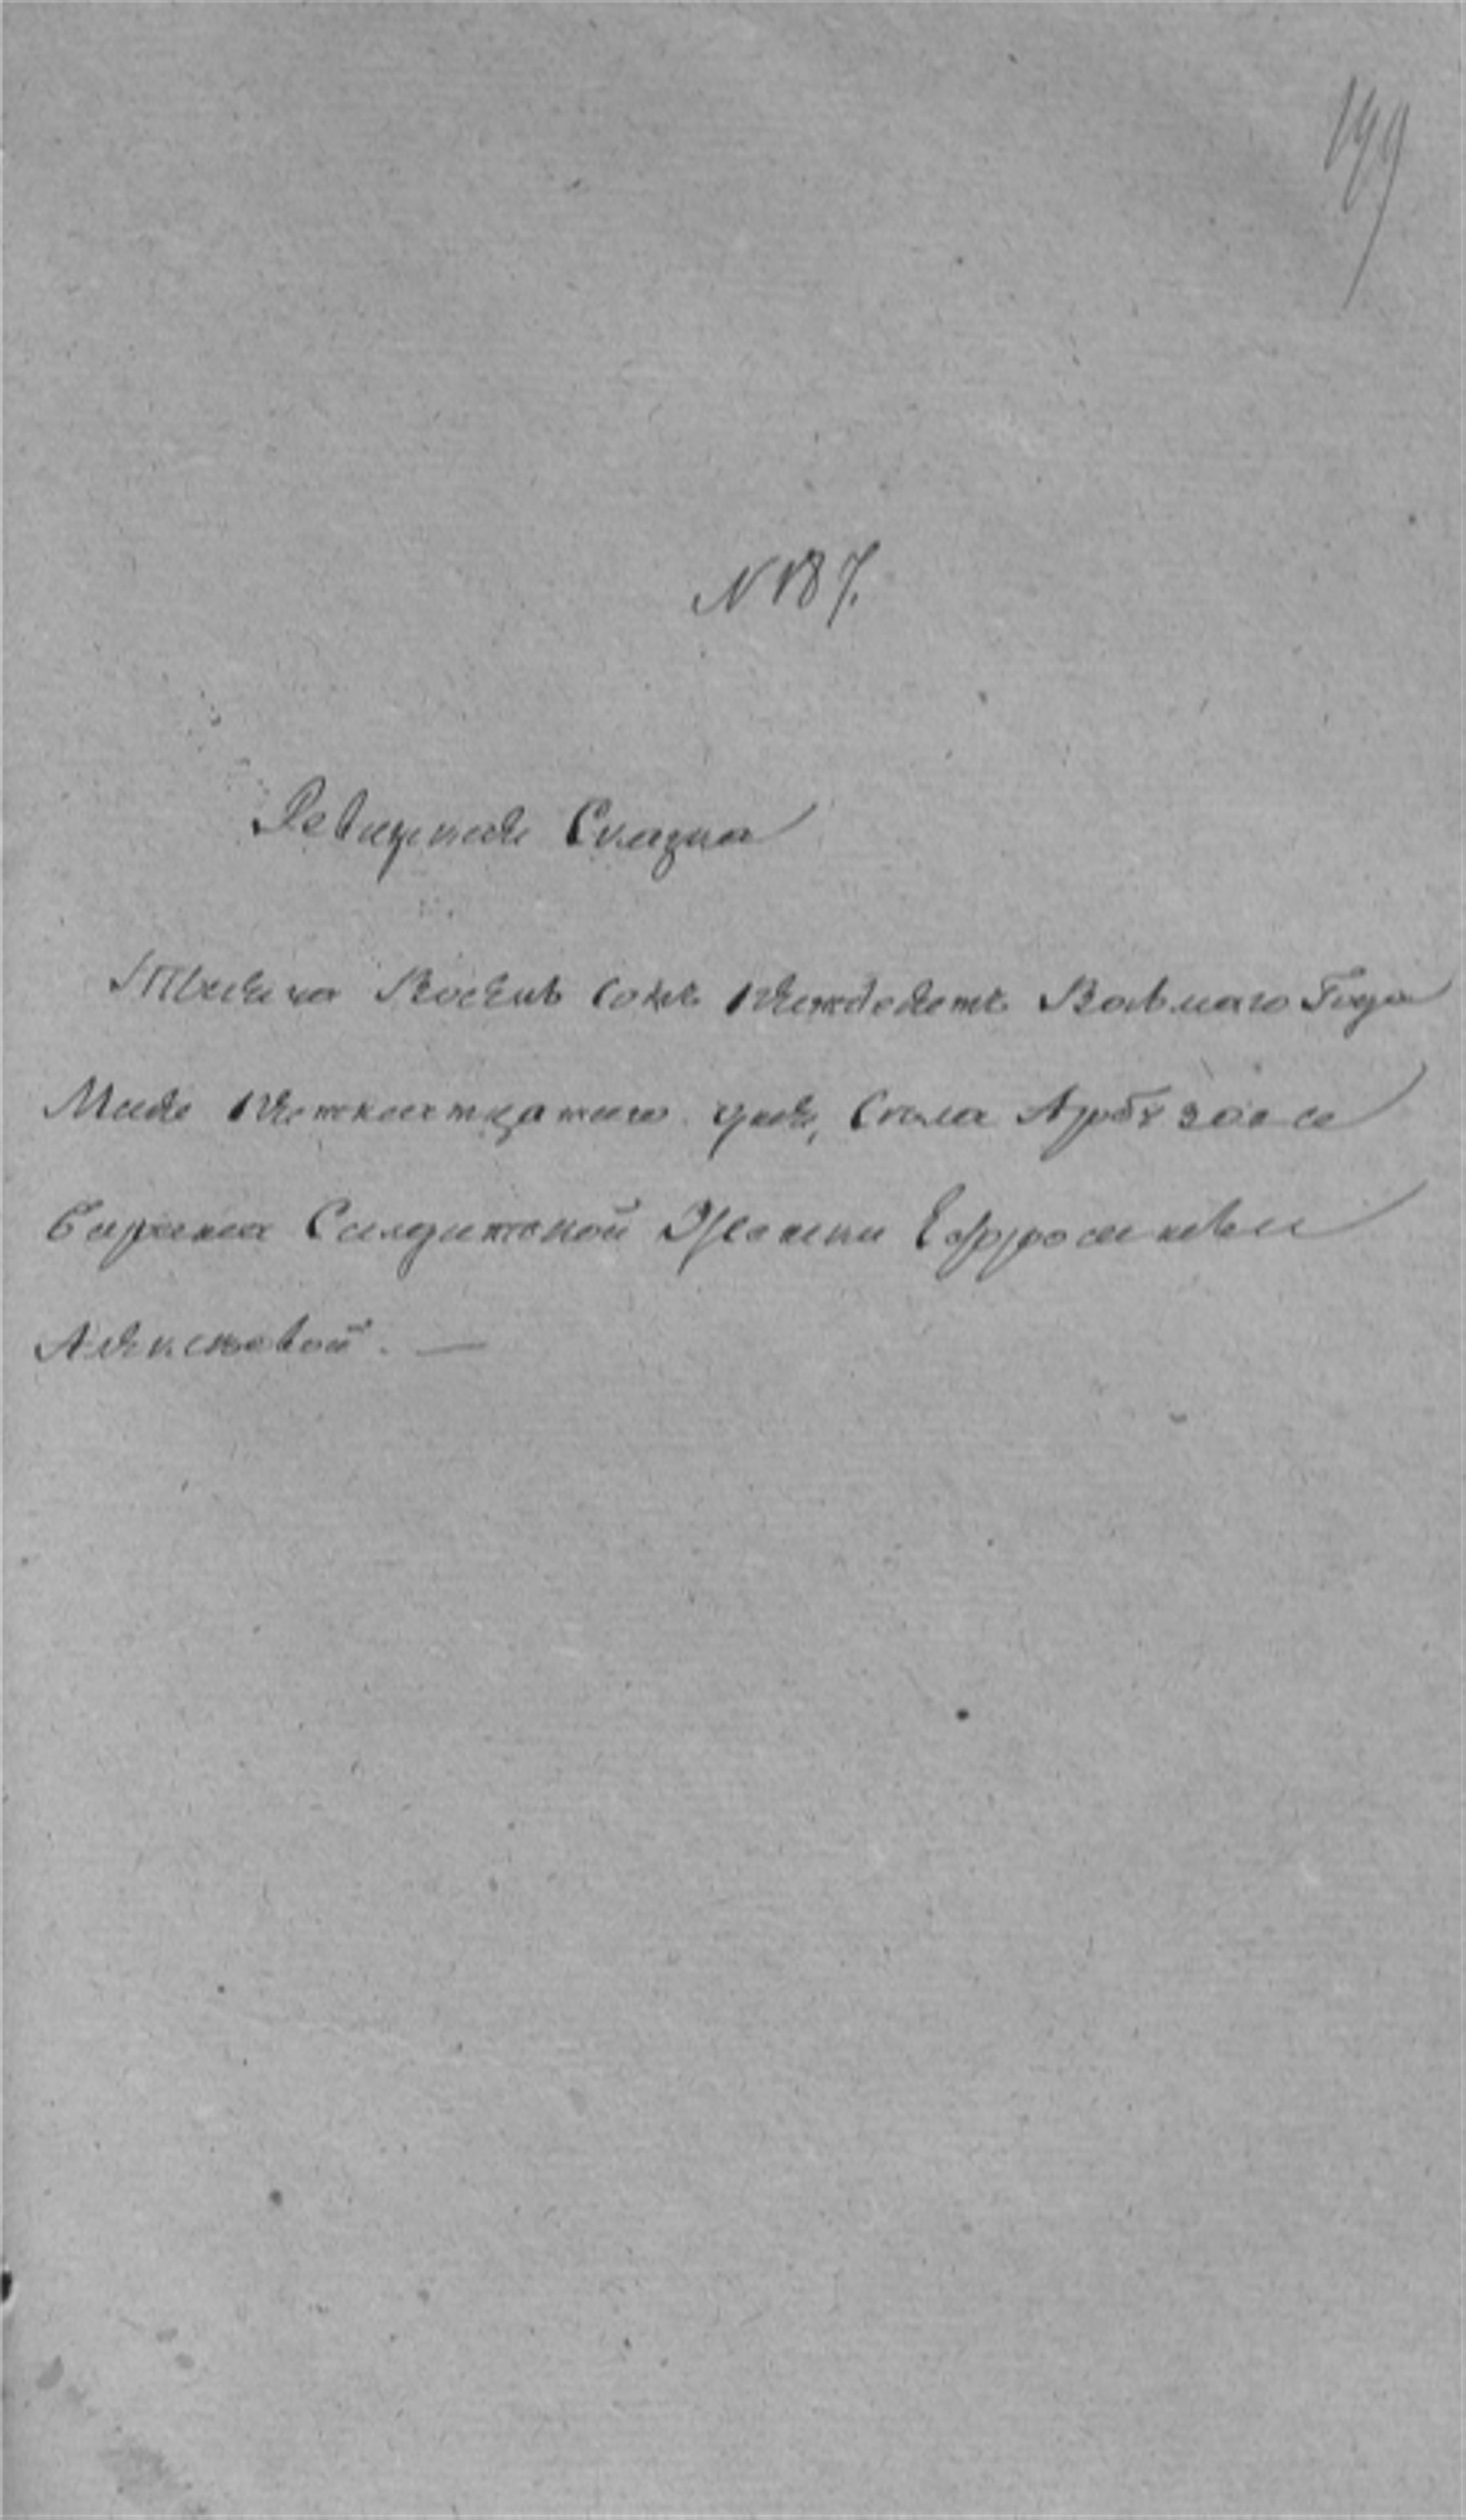 199
N 187.
Ревизская Сказка
Тысяча Восемь Сотъ Пятьдесятъ Восьмаго Года
Маія Пятнатцатаго дня, Села Арбузовсь
Солдатской Жонки Ефросиньи
Алексѣевой. —